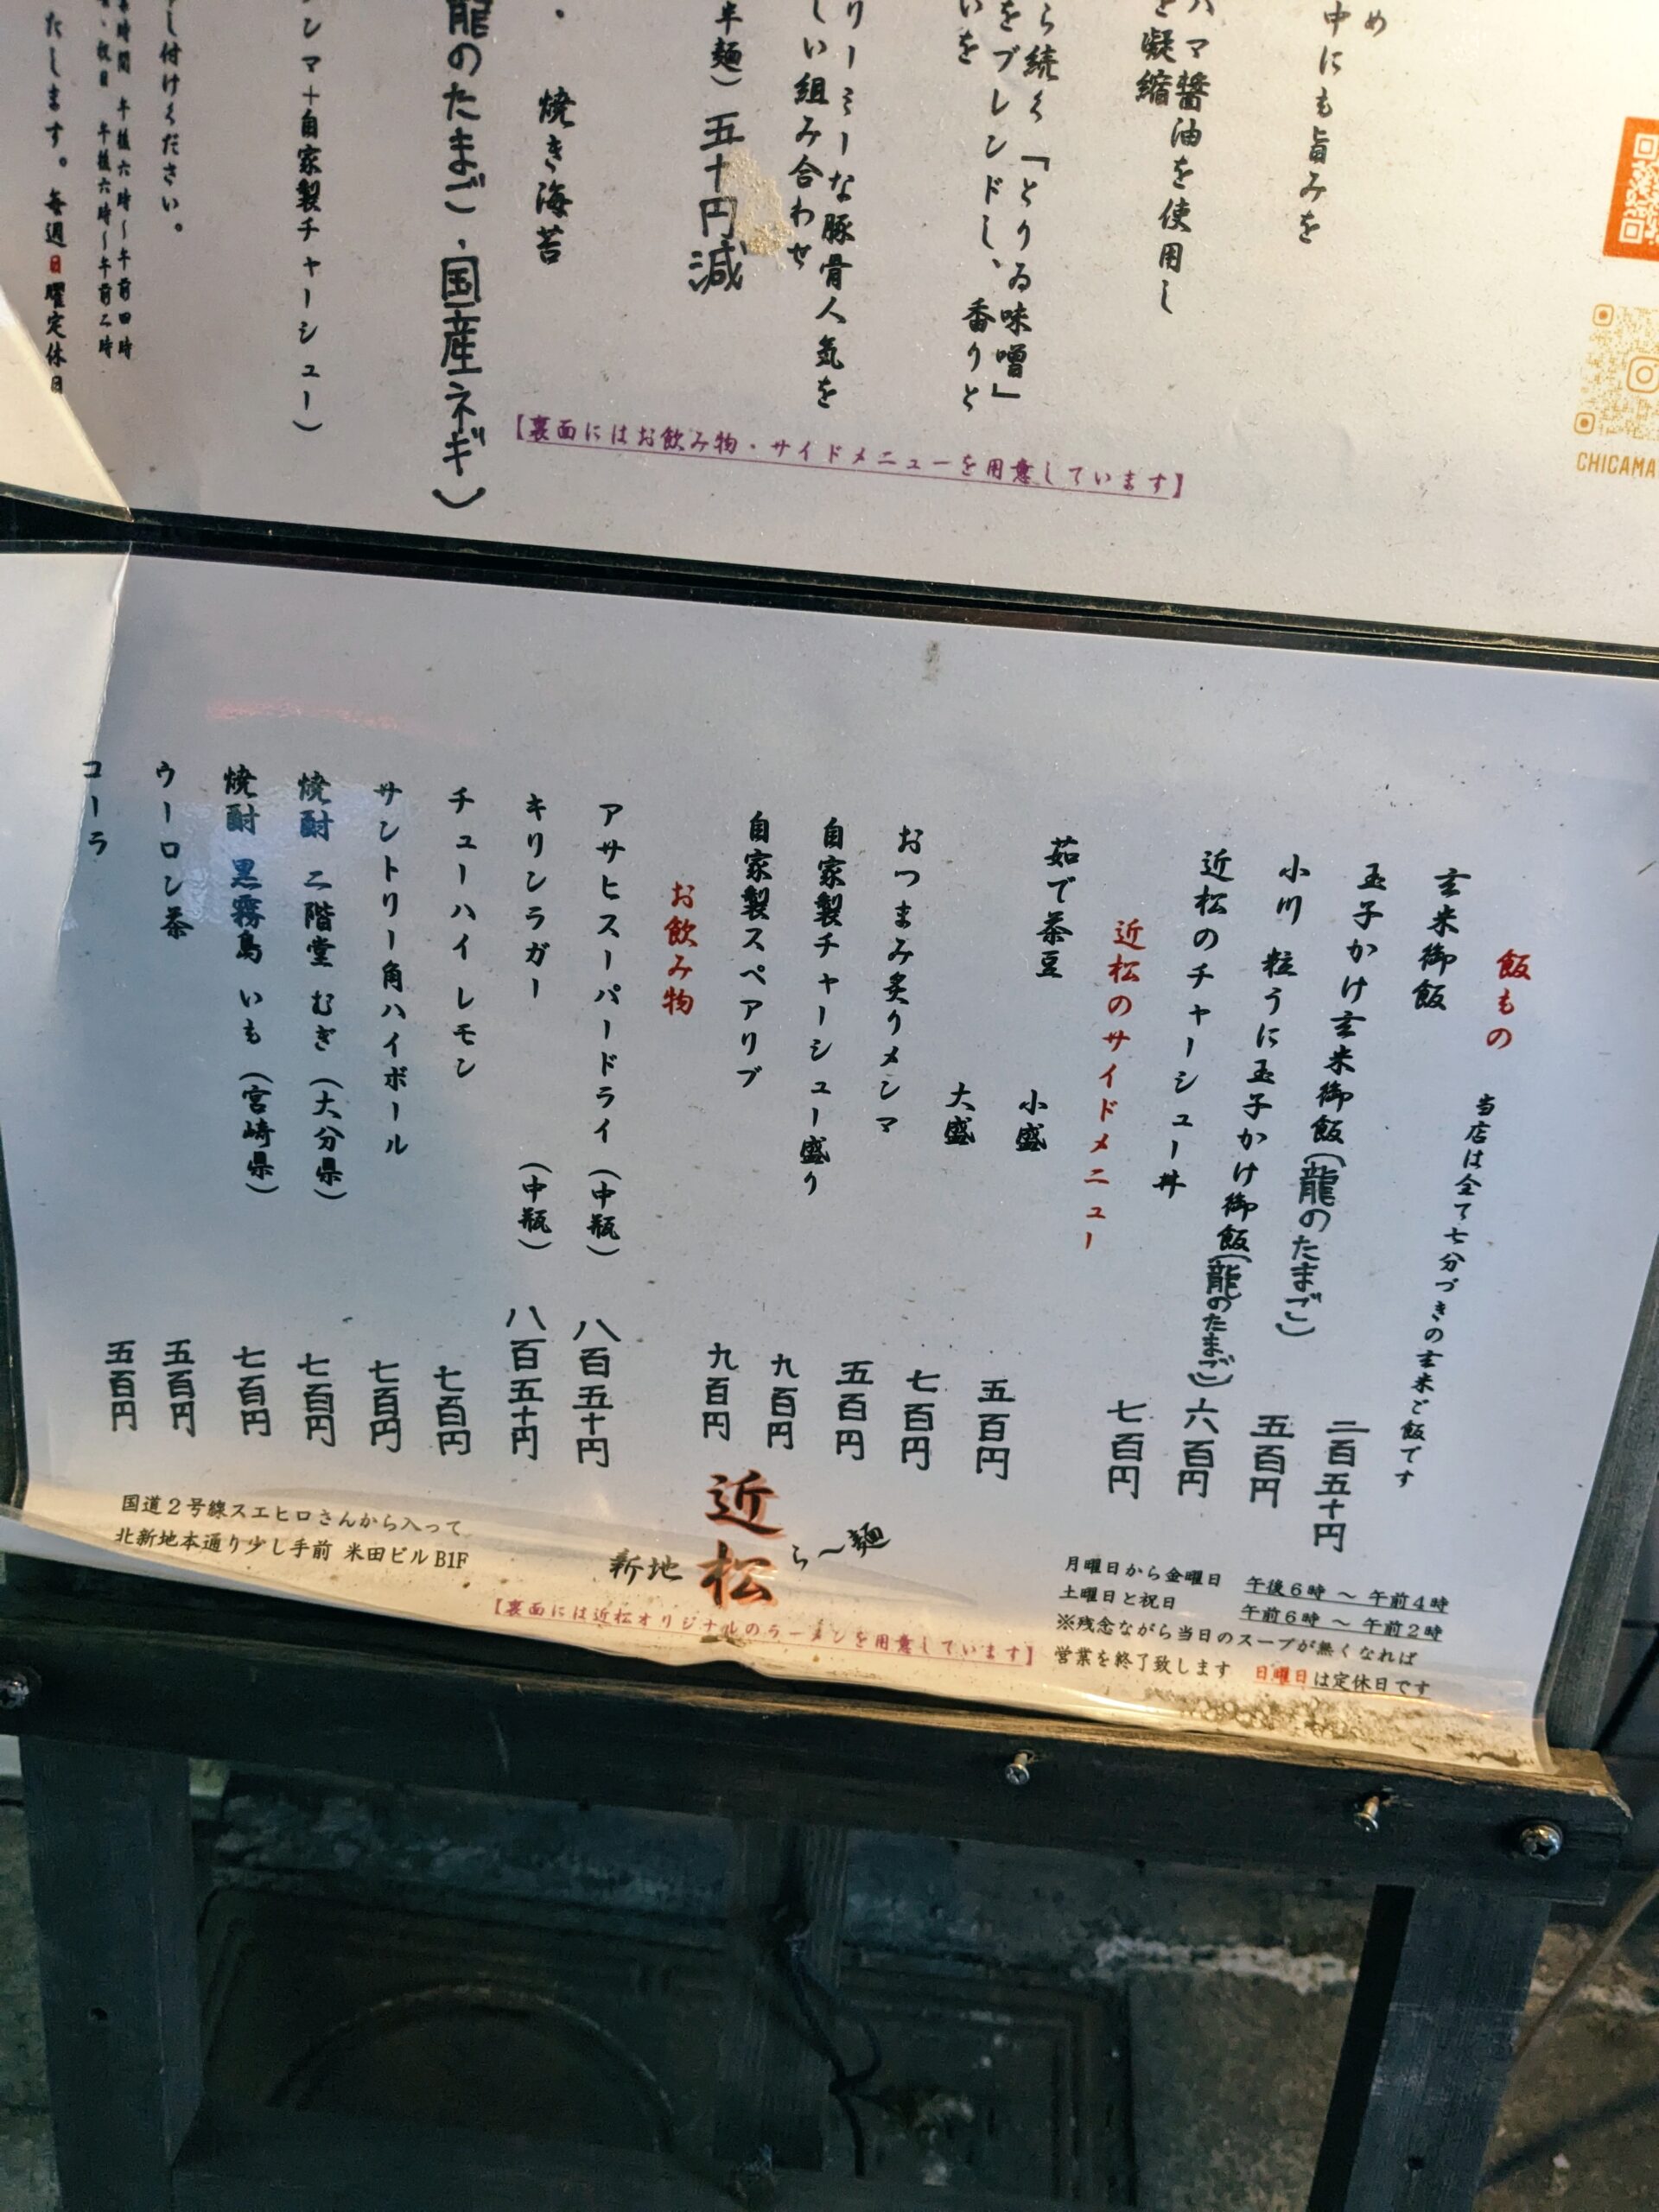 め
中にも旨みを
ハマ醤油を使用し
を凝縮
ら続く「とりゐ味噌」
をブレンドし、香りと
いを
リーミーな豚骨人気を
しい組み合わせ
半麺）五十円減
・焼き海苔
龍のたまご、国産ネギ）
ンマ＋自家製チャーシュー）
し付けください。
時間 午後六時～午前四時
・祝日 午後六時～午前二時
たします。毎週日曜定休日
【裏面にはお飲み物・サイドメニューを用意しています】
CHICAMA
飯もの 当店は全て七分づきの玄米ご飯です
玄米御飯 二百五十円
玉子かけ玄米御飯（龍のたまご） 五百円
小川 粒うに玉子かけ御飯（龍のたまご） 六百円
近松のチャーシュー丼 七百円
近松のサイドメニュー
茹で茶豆 小盛 五百円
大盛 七百円
おつまみ炙りメンマ 五百円
自家製チャーシュー盛り 九百円
自家製スペアリブ 九百円
お飲み物
アサヒスーパードライ（中瓶） 八百五十円
キリンラガー（中瓶） 八百五十円
チューハイ レモン 七百円
サントリー角ハイボール 七百円
焼酎 二階堂 むぎ（大分県） 七百円
焼酎 黒霧島 いも（宮崎県） 七百円
ウーロン茶 五百円
コーラ 五百円
国道２号線スエヒロさんから入って
北新地本通り少し手前 米田ビルB1F
新地 近松 ら～麺
【裏面には近松オリジナルのラーメンを用意しています】
月曜日から金曜日 午後６時 ～ 午前４時
土曜日と祝日 午前６時 ～ 午前２時
※残念ながら当日のスープが無くなれば
営業を終了致します 日曜日は定休日です